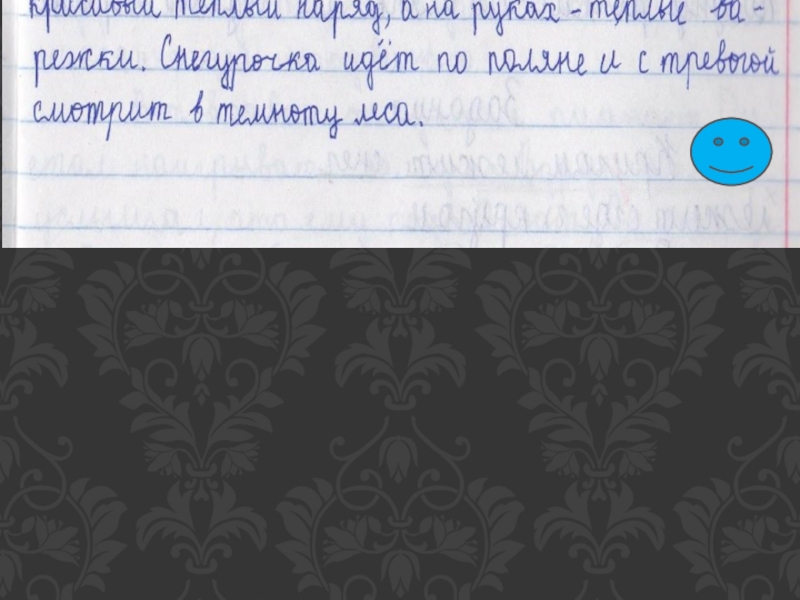 красивый тёплый наряд, а на руках - тёплые ва-
режки. Снегурочка идёт по поляне и с тревогой
смотрит в темноту леса.